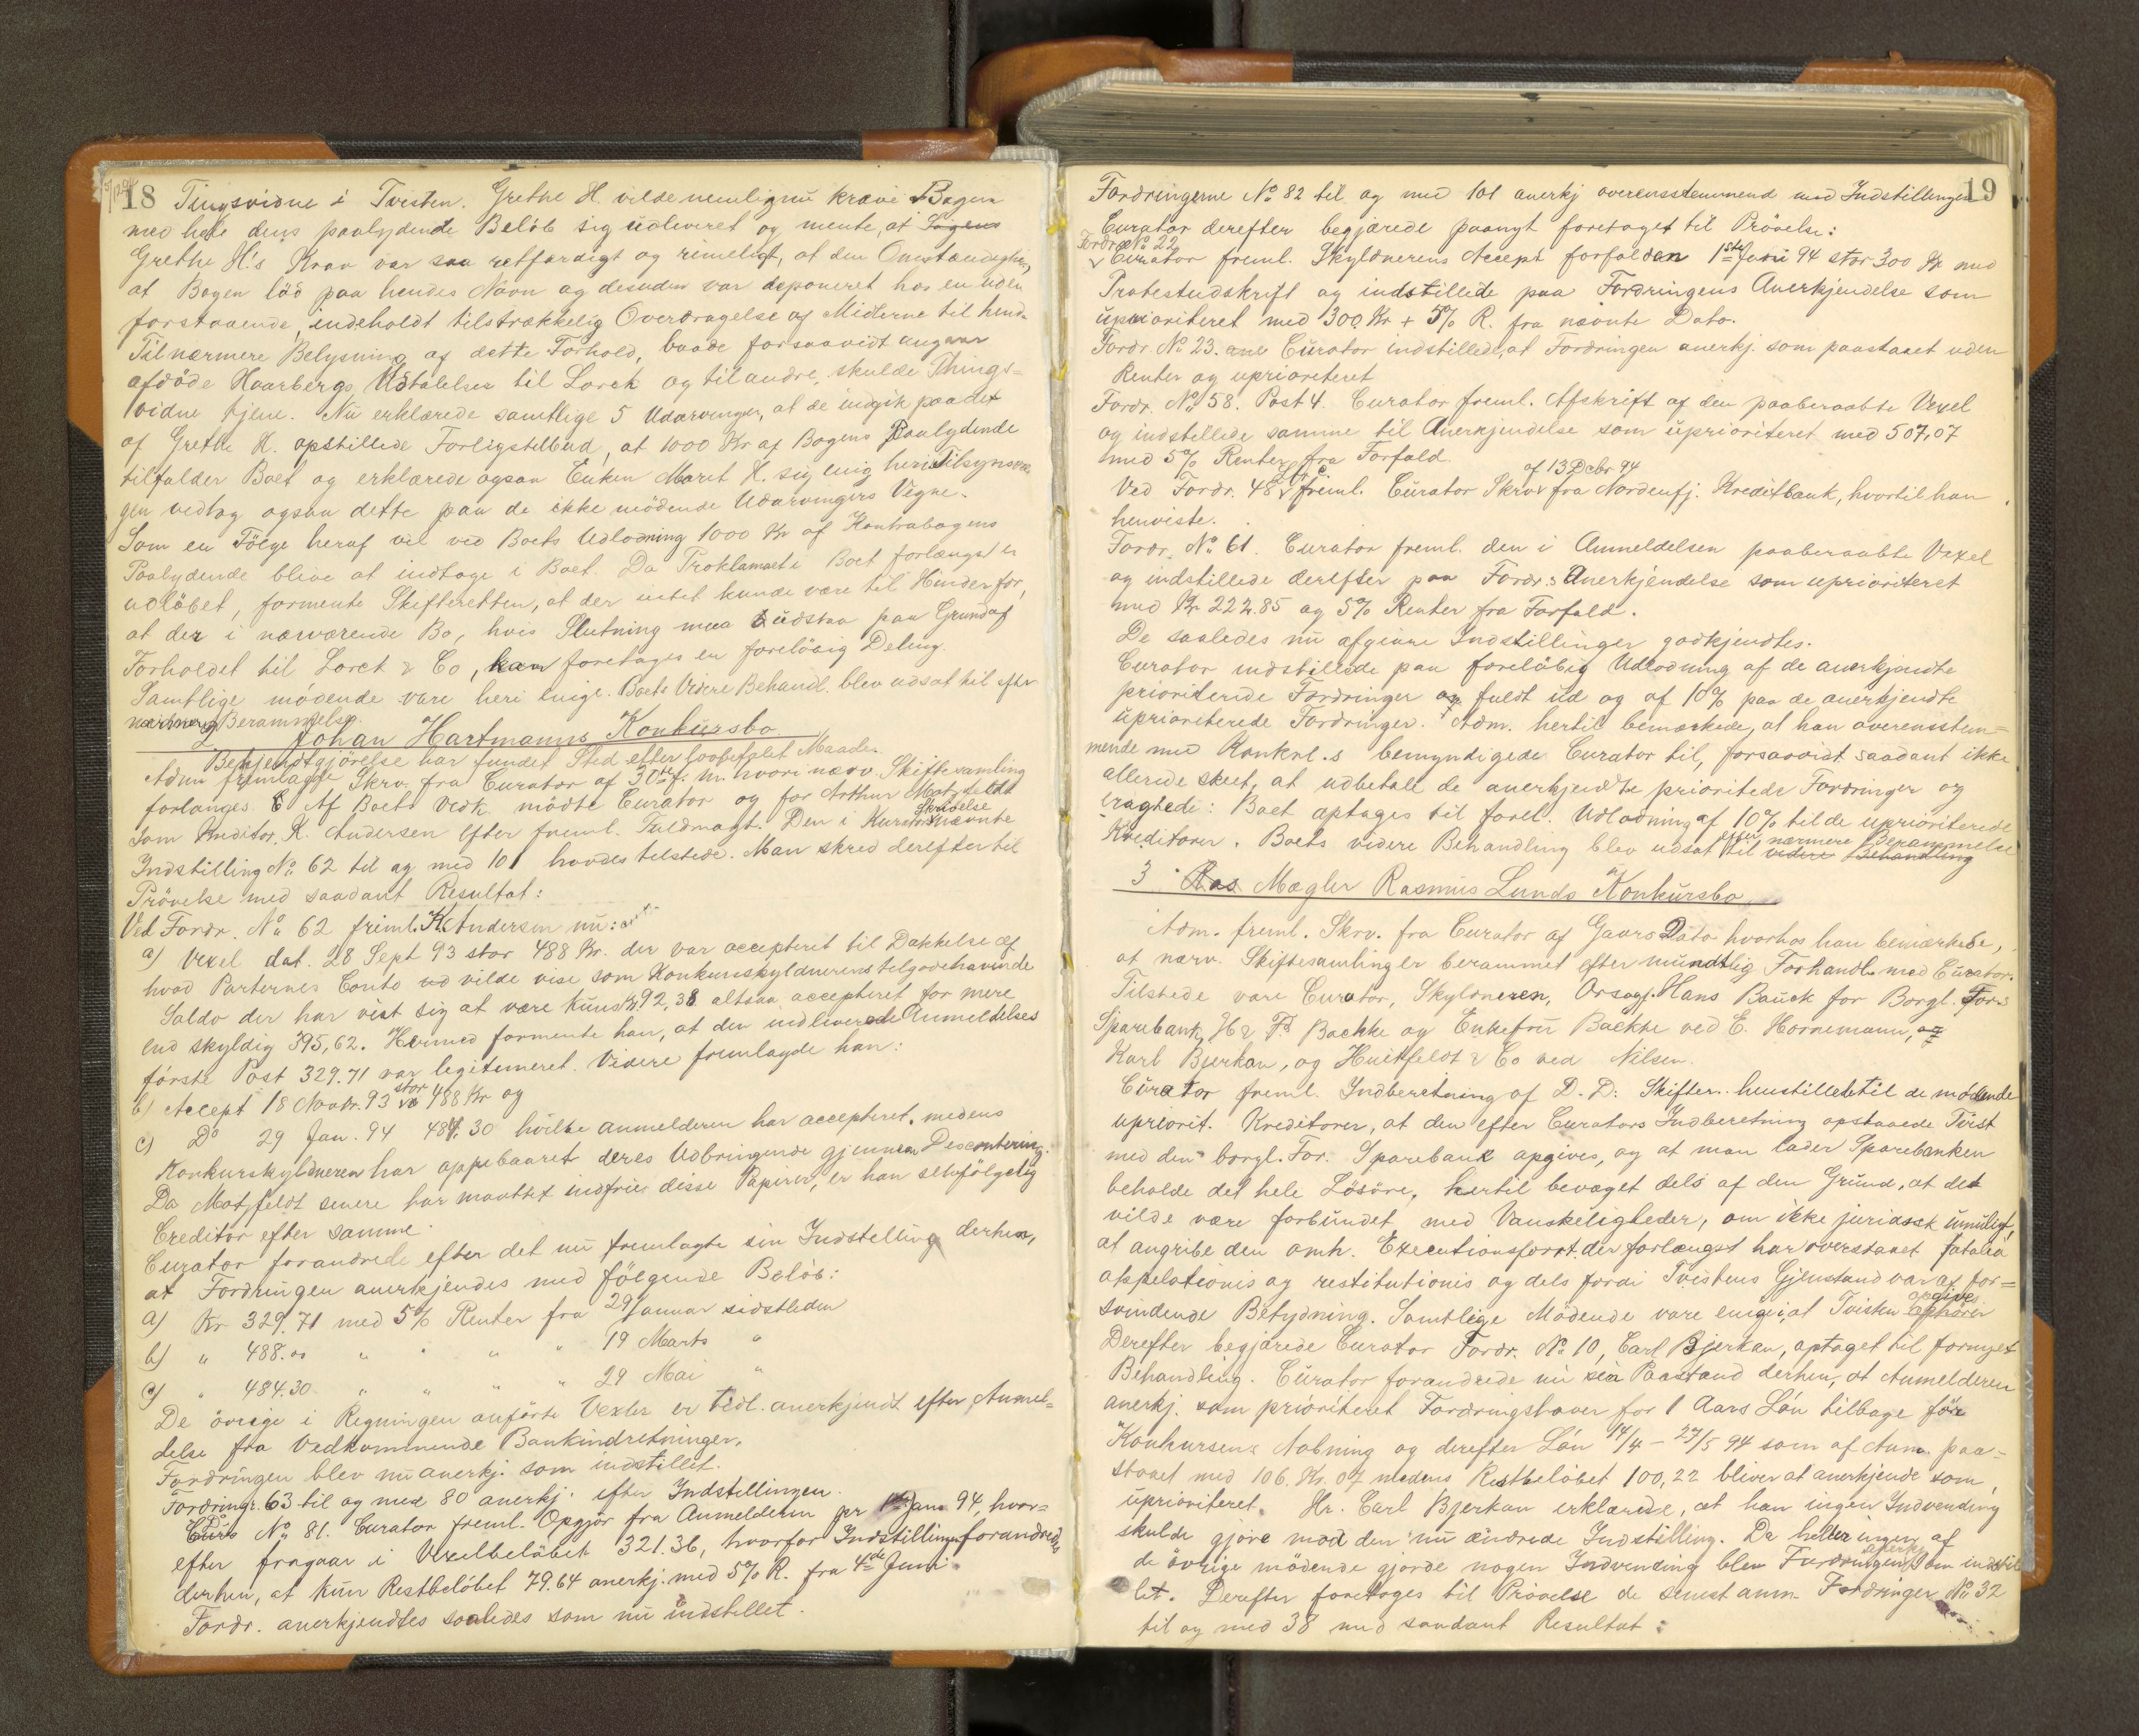 18 Tingsvidne i Tvisten. Grethe H. vilde nemlig nu kræve Bogen
med hele dens paalydende Beløb sig udleveret og mente, at
Grethe H.'s Krav var saa retfærdigt og rimeligt, at den Omstændighed,
at Bogen löd paa hendes Navn og desuden var deponeret hos en uden
forstaaende, indeholdt tilstrækkelig Overdragelse af Midlerne til hende.
Til nærmere Belysning af dette Forhold, baade forsaavidt angaar
afdöde Haarbergs Udtalelser til Lorck og til andre, skulde Things-
vidne tjene. Nu erklærede samtlige 5 Udarvinger, at de indgik paa det
af Grethe H. opstillede Forligstilbud, at 1000 Kr af Bogens Paalydende
tilfalder Boet og erklærede ogsaa Enken Marit H. sig enig heri. Tilsynsvær
gen vedtog ogsaa dette paa de ikke mödende Udarvingers Vegne.
Som en Fölge heraf vil ved Boets Udlodning 1000 Kr af Kontrabogens
Paalydende blive at indtage i Boet. Da Proklamaet i Boet forlængst er
udlöbet, formente Skifteretten, at der intet kunde være til Hinder for,
at der i nærværende Bo, hvis Slutning maa udstaa paa Grund af
Forholdet til Lorck & Co, kan foretages en foreløbig Deling.
Samtlige mödende vare heri enige. Boets Videre Behandl. blev udsat til efter
nærmere Berammelse.
2 Johan Hartmanns Konkursbo
Bekjendtgjörelse har fundet Sted efter foreskrevet Maade.
Adm fremlagde Skrv. fra Curator af 30te f. M. hvori nærv. Skiftesamling
forlanges. Af Boets Vedk. mödte Curator og for Arthur Motzfeldt
som Kreditor, K. Andersen efter freml. Fuldmagt. Den i Kurators Skrivelse nævnte
Indstilling No 62 til og med 101 havdes tilstede. Man skred derefter til
Prövelse med saadant Resultat:
Ved Fordr. No 62 freml. K. Andersen nu:
a) Vexel dat. 28 Sept 93 stor 488 Kr. der var accepteret til Dækkelse af
hvad Parternes Conto vilde vise som Konkursskyldnerens tilgodehavende
Saldo der har vist sig at være kuns Kr. 92,38 altsaa accepteret for mere
end skyldig 395,62. Hermed formente han, at den indleverede Anmeldelses
første Post 329.71 var legitimeret. Videre fremlagde han:
b) Accept 18 Novbr. 93 stor 488 Kr og
c) Do 29 Jan. 94 484.30 hvilke anmelderen har accepteret, medens
Konkursskyldneren har oppebaaret deres Udbringende gjennem Descontering.
Da Motzfeldt senere har maattet indfrie disse Papirer, er han selvfølgelig
Creditor efter samme.
Curator forandrede efter det nu fremlagte sin Indstilling derhen,
at Fordringen anerkjendes med fölgende Belöb:
a) Kr 329.71 med 5% Renter fra 29 Januar sidstleden
b) " 488.00 " " " " 19 Marts "
c) " 484.30 " " " " 29 Mai "
De övrige i Regningen anførte Vexler er tidl. anerkjendt efter Anmel-
delse fra Vedkommende Bankindretninger.
Fordringen blev nu anerkj. som indstillet.
Fordringr. 63 til og med 80 anerkj. efter Indstillingen.
Do No 81. Curator freml. Opgjör fra Anmelderen pr 1ste Janr 94, hvor-
efter fragaar i Vexelbeløbet 321.36, hvorfor Indstillingen forandredes
derhen, at kun Restbelöbet 79.64 anerkj. med 5% R. fra 4de Juni.
Fordr. anerkjendtes saaledes som nu indstillet.
19
Fordringerne No 82 til og med 101 anerkj overensstemmend med Indstillingen
Curator derefter begjærede paanyt foretaget til Prövelse:
Fordr. No 22
Curator freml. Skyldnerens Accept forfalden 1ste Juni 94 stor 300 Kr med
Protestudskrift og indstillede paa Fordringens Anerkjendelse som
uprioriteret med 300 Kr + 5% R. fra nævnte Dato.
Fordr No 23. Curator indstillede, at Fordringen anerkj. som paastaaet uden
Renter og uprioriteret
Fordr. No 58. Post 4. Curator freml. Afskrift af den paaberaabte Vexel
og indstillede samme til Anerkjendelse som uprioriteret med 507,07
med 5% Renter fra Forfald.
Ved Fordr. 48 freml. Curator Skrv. af 13 Debr 94 fra Nordenfj. Kreditbank, hvortil han
henviste.
Fordr. No 61. Curator freml. den i Anmeldelsen paaberaabte Vexel
og indstillede derefter paa Fordr.s Anerkjendelse som uprioriteret
med Kr 222.85 og 5% Renter fra Forfald.
De saaledes nu afgivne Indstillinger godkjendtes.
Curator indstillede paa foreløbig Udlodning af de anerkjendte
prioriterede Fordringer fuldt ud og af 10% paa de anerkjendte
uprioriterede Fordringer. Adm. hertil bemærkede, at han overensstem-
mende med Konkurl.s bemyndigede Curator til, forsaavidt saadant ikke
allerede skeet, at udbetale de anerkjendte prioritede Fordringer og
eragtede: Boet optages til forel. Udlodning af 10% til de uprioriterede
Kreditorer. Boets videre Behandling blev udsat til efter nærmere Berammelse videre Behandling
3 Ras Mægler Rasmus Lunds Konkursbo
Adm. freml. Skrv. fra Curator af Gaars Dato hvorhos han bemærkede,
at nærv. Skiftesamling er berammet efter mundtlig Forhandl. med Curator.
Tilstede vare Curator, Skyldneren, Orsagf. Hans Bauck for Borgl. For.s
Sparebank, H & F Backke og Enkefru Bäckke ved E. Hornemann,
Karl Bjerkan, og Huitfeldt & Co ved Nilsen.
Curator freml. Indberetning af D. D. Skifter. henstillede til de mødende
upriorit. Kreditorer, at den efter Curators Indberetning opstaaede Tvist
med den borgl. For. Sparebank opgives, og at man lader Sparebanken
beholde det hele Lösöre, hertil bevæget dels af den Grund, at det
vilde være forbundet med Vanskeligheder, om ikke juridisk umuligt,
at angribe den omh. Executionsforrt. der forlængst har overstaaet fatalia
appelationis og restitutionis og dels fordi Tvistens Gjenstand var af for-
svindende Betydning. Samtlige Mödende vare enige i, at Tvisten opgives ophörer
Derefter begjærede Curator Fordr. No 10, Carl Bjerkan, optaget til fornyet
Behandling. Curator forandrede nu sin Paastand derhen, at Anmelderen
anerkj. som prioriteret Fordringshaver for 1 Aars Lön tilbage för
Konkursens Aabning og derefter Lön 17/4 – 27/5 94 som af Anm. paa-
staaet med 106 Kr. 07 medens Restbelöbet 100,22 bliver at anerkjende som
uprioriteret. Hr. Carl Bjerkan erklærede, at han ingen Indvending
skulde gjöre mod den nu ændrede Indstilling. Da heller ingen af
de övrige mödende gjorde nogen Indvending blev Fordringen anerkj. som indstil
let. Derefter foretoges til Prövelse de senest anm. Fordringer No 32
til og med 38 med saadant Resultat: